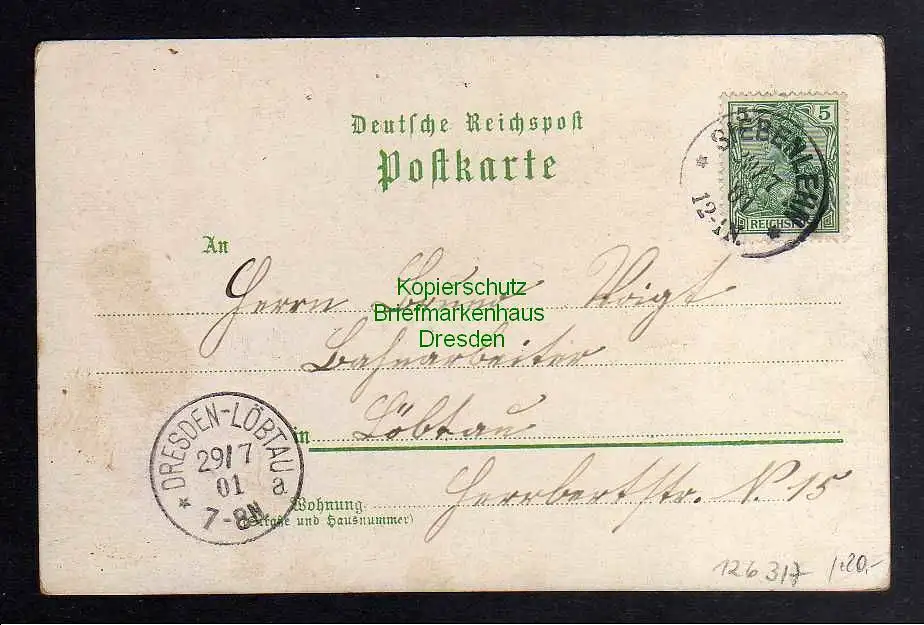 Deutsche Reichspost
Postkarte
5 5
REICHSPOST
* SIEBENLEHN *
29/7
01
12-1N.
An
Herrn Bruno Voigt
Kopierschutz
Briefmarkenhaus
Dresden
Bahnarbeiter
in Löbtau
DRESDEN-LÖBTAU
29/7
01
7-8N
* a
Wohnung
(Straße und Hausnummer)
Herrbertstr. N 15